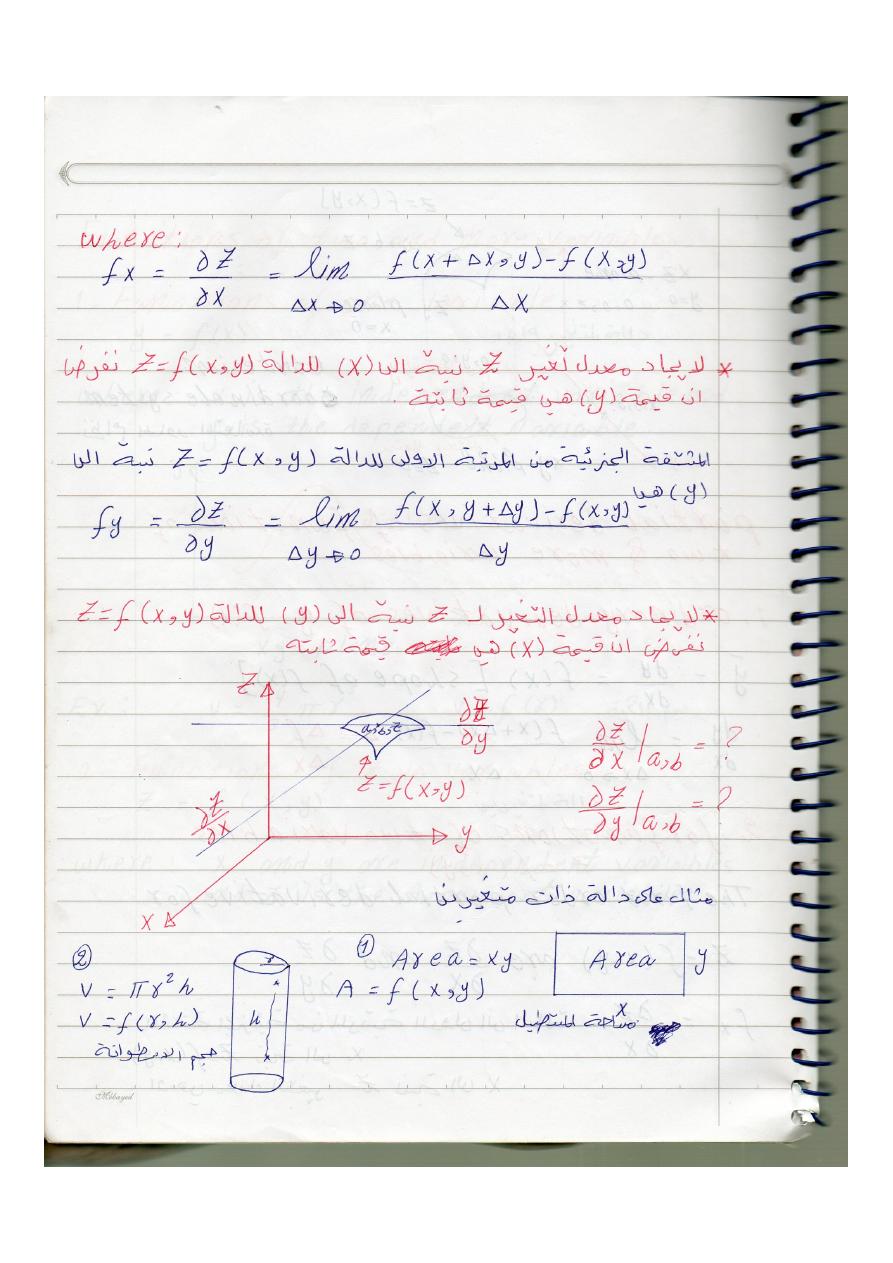 where:
fx = ∂Z/∂X = lim Δx→0 f(x+Δx,y)-f(x,y) / ΔX
* لايجاد معدل تغير Z نسبة الى (X) للدالة Z=f(x,y) نفرض
ان قيمة (y) هي قيمة ثابتة .
المشتقة الجزئية من المرتبة الاولى للدالة Z=f(x,y) نسبة الى
(y) هي
fy = ∂Z/∂y = lim Δy→0 f(x,y+Δy)-f(x,y) / Δy
* لايجاد معدل التغير لـ Z نسبة الى (y) للدالة Z=f(x,y)
نفرض ان قيمة (X) هي قيمة ثابته
Z
a,b,z
∂Z/∂y
Z=f(x,y)
∂Z/∂X
y
X
∂Z/∂X | a,b = ?
∂Z/∂y | a,b = ?
مثال على دالة ذات متغيرين
① Area = xy
A = f(x,y)
Area
y
x
مساحة المستطيل
②
V = πr²h
V = f(r,h)
حجم الاسطوانة
r
h
Mobayed